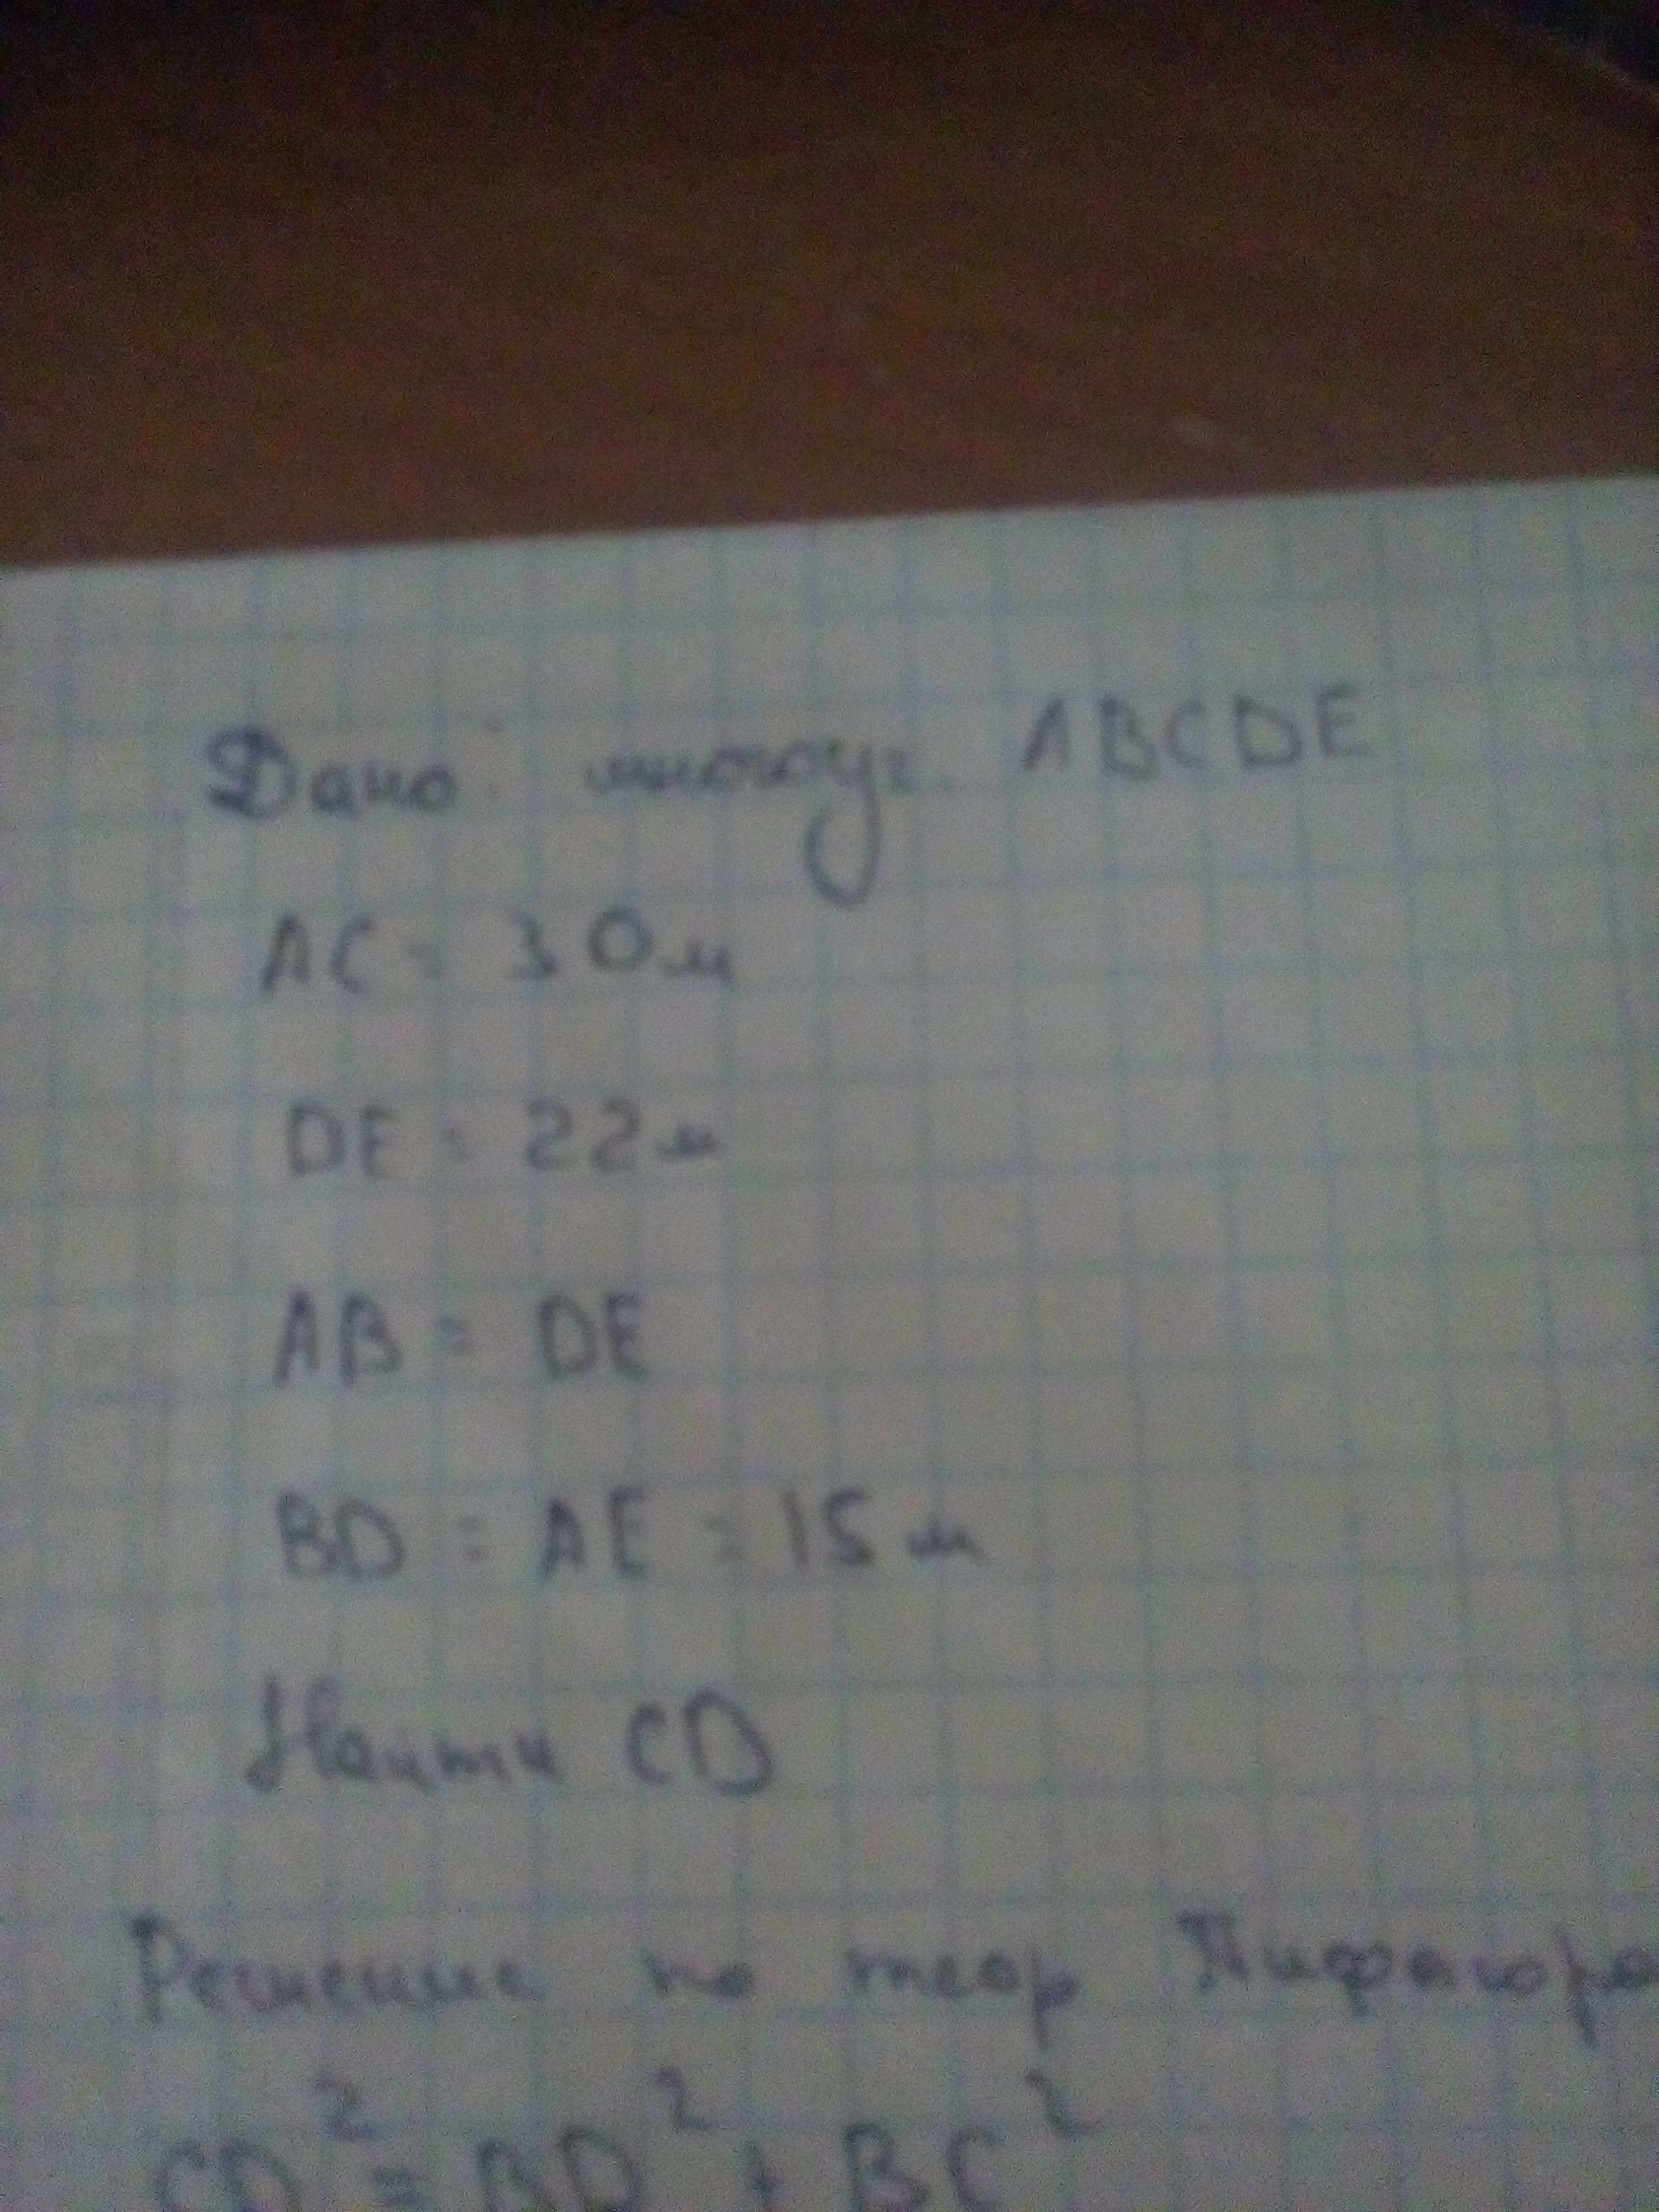 Дано: многоуг. ABCDE
AC = 30 м
DE = 22 м
AB = DE
BD = AE = 15 м
Найти CD
Решение по теор Пифагора
CD² = BD² + BC²